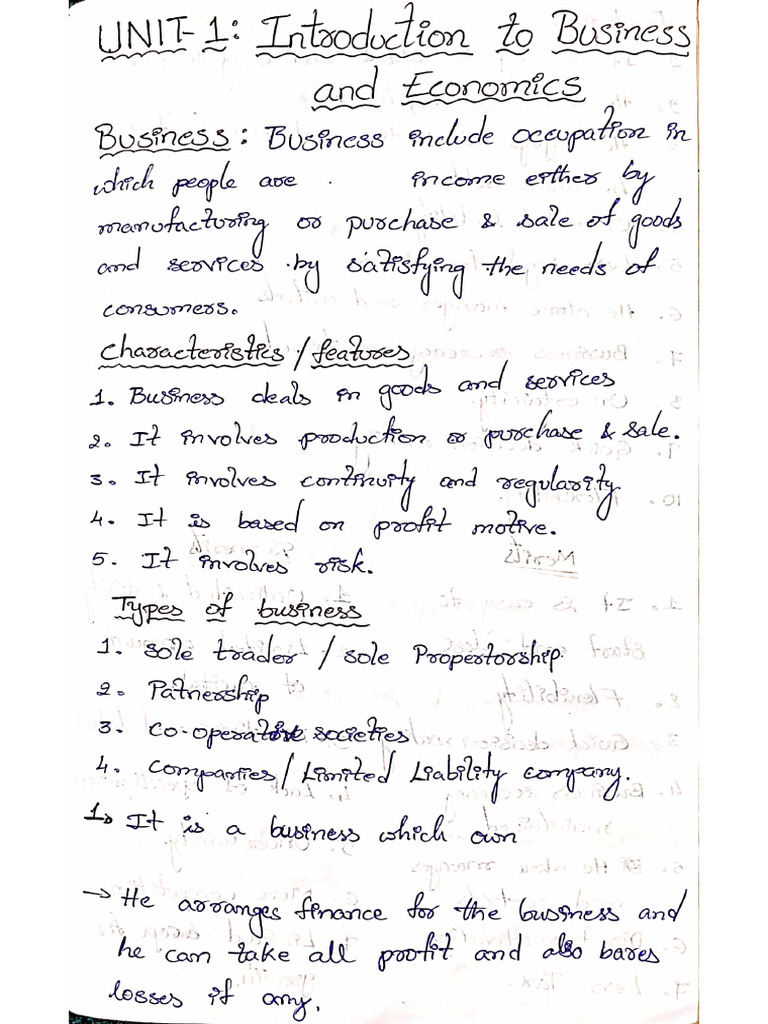 UNIT-1: Introduction to Business
and Economics
Business: Business include occupation in
which people are . income either by
manufacturing or purchase & sale of goods
and services by satisfying the needs of
consumers.
Characteristics / features
1. Business deals in goods and services
2. It involves production or purchase & sale.
3. It involves continuity and regularity.
4. It is based on profit motive.
5. It involves risk.
Types of business
1. Sole trader / sole Propertorship.
2. Patnership
3. Co-operative societies
4. Companies / Limited Liability company.
1. It is a business which own
→ He arranges finance for the business and
he can take all profit and also bares
losses if any.